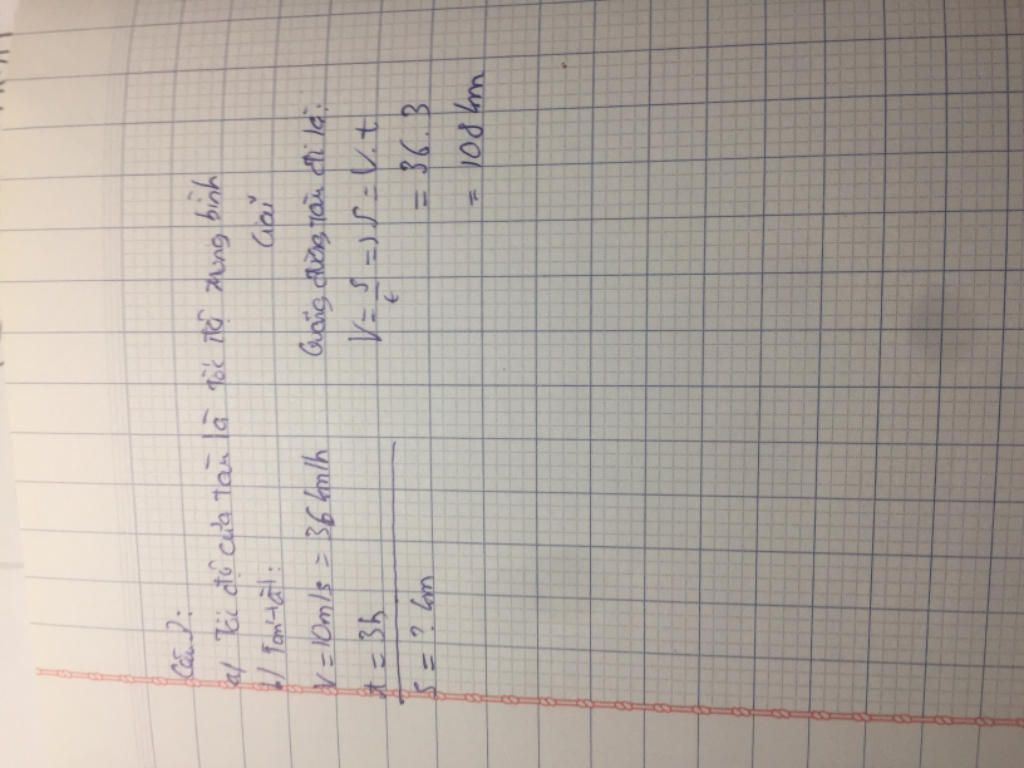 Câu 2:
a/ Tốc độ của tàu là tốc độ trung bình
b/ Tóm tắt: Giải
V = 10m/s = 36 km/h Quãng đường tàu đi là:
t = 3h V = S/t => S = V.t
S = ? km = 36.3
= 108 km